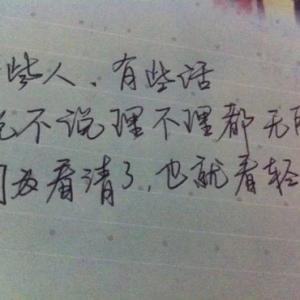 些人、有些话
说不说理不理都无
因为看清了,也就看轻